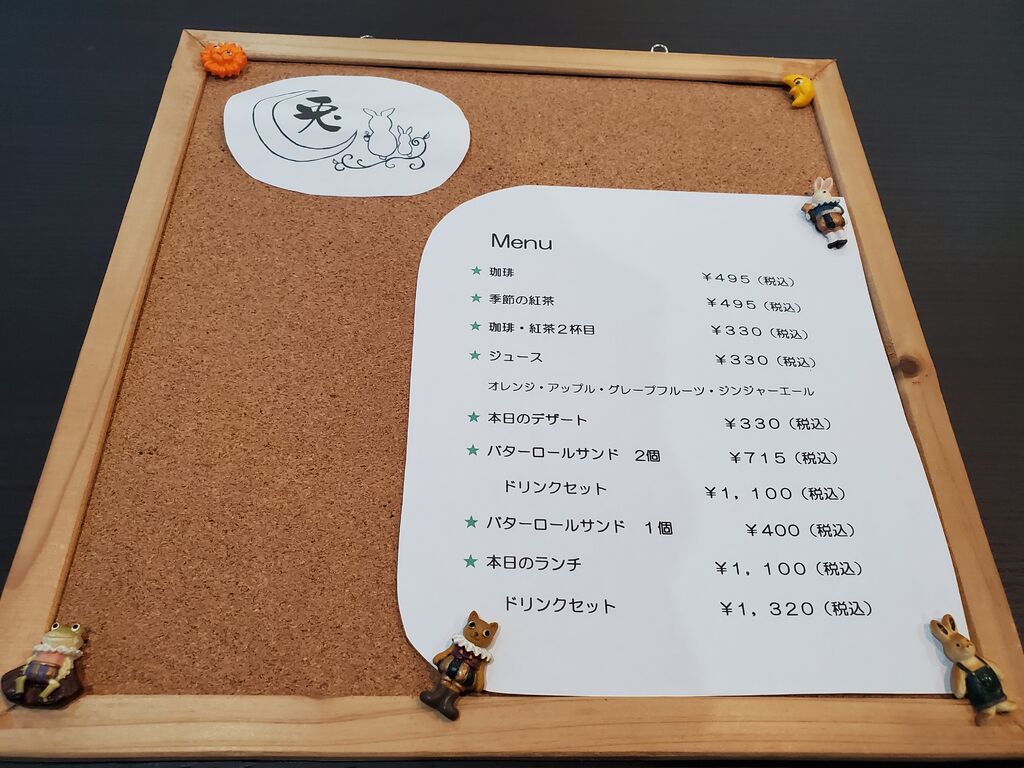 兎
Menu
★ 珈琲 ￥495（税込）
★ 季節の紅茶 ￥495（税込）
★ 珈琲・紅茶２杯目 ￥330（税込）
★ ジュース ￥330（税込）
オレンジ・アップル・グレープフルーツ・ジンジャーエール
★ 本日のデザート ￥330（税込）
★ バターロールサンド　2個 ￥715（税込）
ドリンクセット ￥1，100（税込）
★ バターロールサンド　１個 ￥400（税込）
★ 本日のランチ ￥1，100（税込）
ドリンクセット ￥1，320（税込）